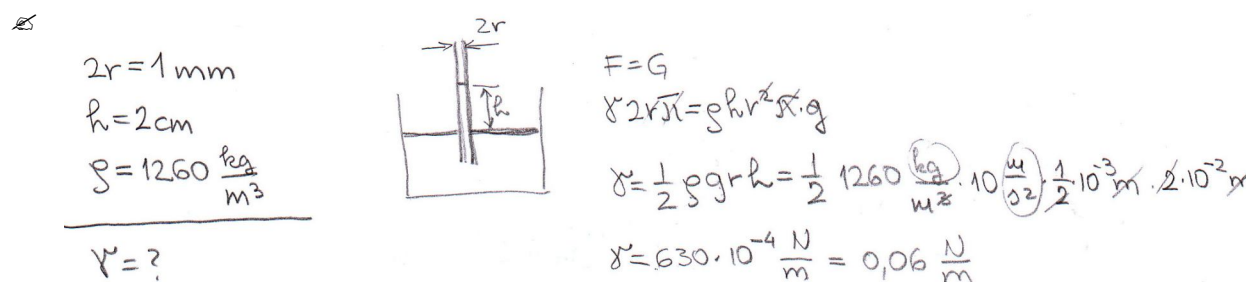 2r = 1 mm
h = 2 cm
ρ = 1260 kg/m³
γ = ?
2r
h
F = G
γ 2rπ = ρhr²π·g
γ = 1/2 ρgrh = 1/2 1260 kg/m³ · 10 m/s² · 1/2 · 10⁻³ m · 2 · 10⁻² m
γ = 630 · 10⁻⁴ N/m = 0,06 N/m